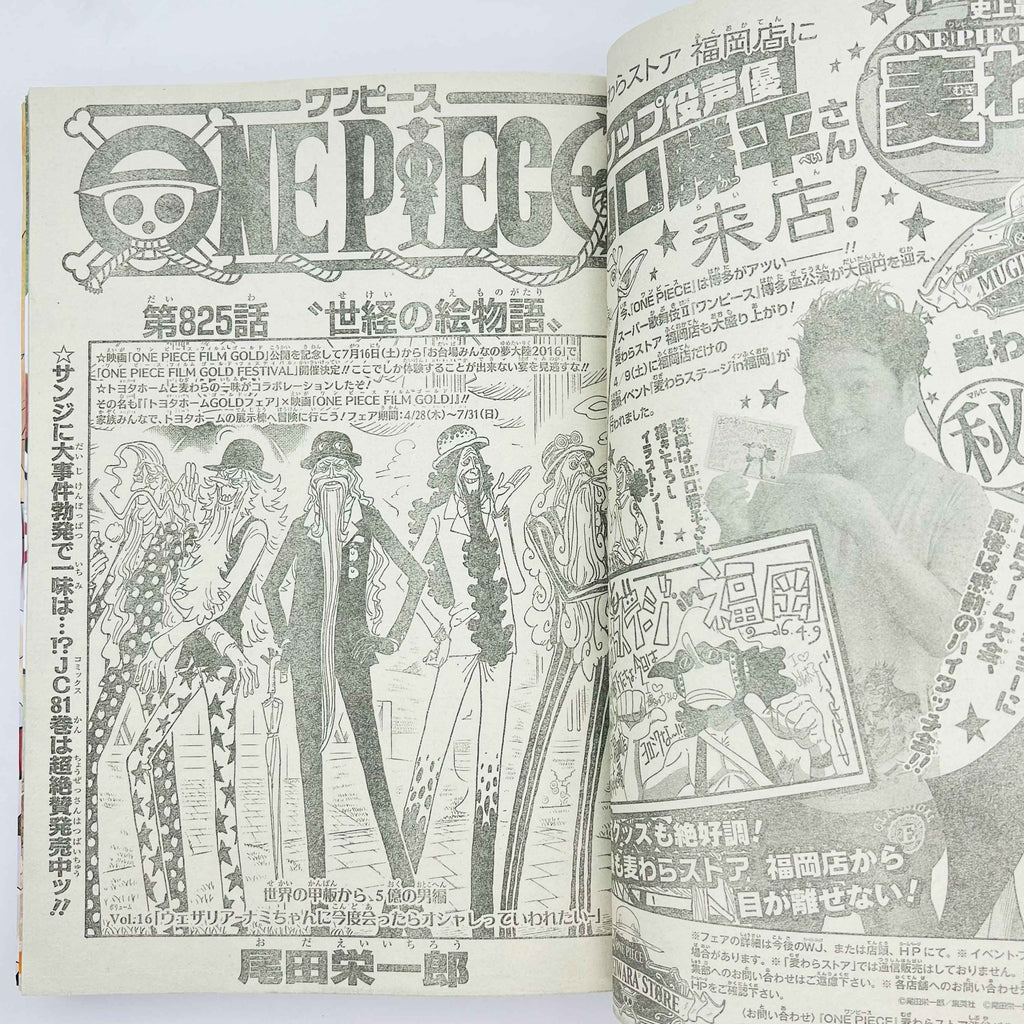 ワンピース
ONE PIEC
第825話 〝世経の絵物語〟
☆映画「ONE PIECE FILM GOLD」公開を記念して7月16日(土)から「お台場みんなの夢大陸2016」で、
「ONE PIECE FILM GOLD FESTIVAL」開催決定!!ここでしか体験することが出来ない宴を見逃すな!!
☆トヨタホームと麦わらの一味がコラボレーションしたぞ!
その名も『「トヨタホームGOLDフェア」×映画「ONE PIECE FILM GOLD」』!!
家族みんなで、トヨタホームの展示棟へ冒険に行こう!フェア期間:4/28(木)〜7/31(日)
☆サンジに大事件勃発で一味は…!?JC81巻は超絶賛発売中ッ!!
世界の甲板から、5億の男編
Vol.16「ウェザリアーナミちゃんに今度会ったらオシャレっていわれたい-」
尾田栄一郎
わらストア 福岡店に
ップ役声優
口勝平さん
来店!
ONE PIECE
麦わ
今、『ONE PIECE』は博多がアツい――!!
スーパー歌舞伎Ⅱ『ワンピース』博多座公演が大団円を迎え、
麦わらストア 福岡店も大盛り上がり!
4/9(土)に福岡店だけの
イベント「麦わらステージin福岡」が
行われました。
イラストシート!
MUGI
麦わ
秘
in 福岡
2016.4.9
グッズも絶好調!
も麦わらストア 福岡店から
目が離せない!
※フェアの詳細は今後のWJ、または店頭、HPにて。※イベント・フ
場合があります。※「麦わらストア」では通信販売はしておりません。
集部へのお問い合わせはご遠慮下さい。※各店舗へのお問い合わせ
HPをご確認下さい。
©尾田栄一郎/集英社 ©尾田栄一
WARA STORE
〈お問い合わせ〉『ONE PIECE』麦わらスト